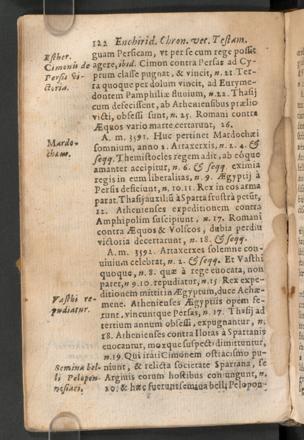 122 Enchirid. Chron. vet. Testam.
Esther.
Cimonis de
Persis vi-
ctoria.
guam Persicam, vt per se cum rege possit
agere, ibid. Cimon contra Persas ad Cy-
prum classe pugnat, & vincit, n. 21 Ter-
ra quoque per dolum vincit, ad Euryme-
dontem Pamphiliæ fluuium, n. 22. Thasij
cum defecissent, ab Atheniensibus prælio
victi, obsessi sunt, n. 25. Romani contra
Æquos vario marte certarunt, 26.
Mardo-
chæus.
A. m. 3591. Huc pertinet Mardochæi
somnium, anno 2. Artaxerxis, n. 2. 4. &
seqq. Themistocles regem adit, ab eóque
amanter accipitur, n. 6. & seqq. eximia
regis in eum liberalitas, n. 9. Ægyptij à
Persis deficiunt, n. 10. 11. Rex in eos arma
parat. Thasij auxiliũ à Sparta frustrà petũt,
12. Athenienses expeditionem contra
Amphipolim suscipiunt, n. 17. Romani
contra Æquos & Volscos, dubia perdiu
victoria decertarunt, n. 18. & seqq.
A. m. 3592. Artaxerxes solemne con-
uiuium celebrat, n. 2. & seqq. Et Vasthi
quoque, n. 8. quæ à rege euocata, non
paret, n. 9. 10. repudiatur, n. 15 Rex expe-
Vasthi re-
pudiatur.
ditionem mittit in Ægyptum, duce Achæ-
mene. Athenienses Ægyptiis opem fe-
runt, vincuntque Persas, n. 17. Thasij ad
tertium annum obsessi, expugnantur, n.
18. Athenienses contra Ilotas à Spartanis
euocantur, moxque suspecti dimittuntur,
n. 19. Qui irati Cimonem ostracismo pu-
Semina bel-
li Pelopon-
nesiaci.
niunt, & relicta societate Spartana, se
Argiuis eorum hostibus coniungunt, n.
20. & hæc fuerunt semina belli Pelopon-